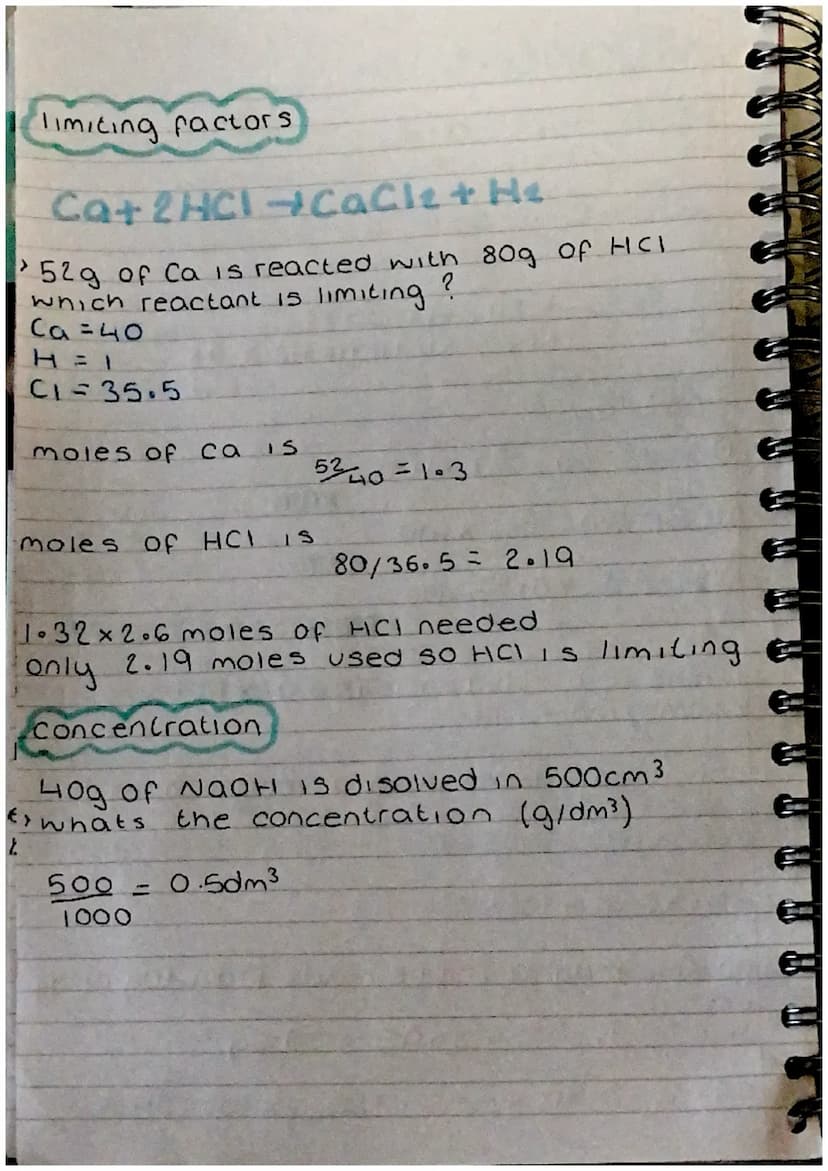 limiting factors
Ca + 2HCl → CaCl₂ + H₂
> 52g of Ca is reacted with 80g of HCl
which reactant is limiting ?
Ca = 40
H = 1
Cl = 35.5
moles of ca is
52/40 = 1.3
moles of HCl is
80/36.5 = 2.19
1.32 × 2.6 moles of HCl needed
only 2.19 moles used so HCl is limiting
concentration
40g of NaOH is disolved in 500cm³
whats the concentration (g/dm³)
500/1000 = 0.5dm³